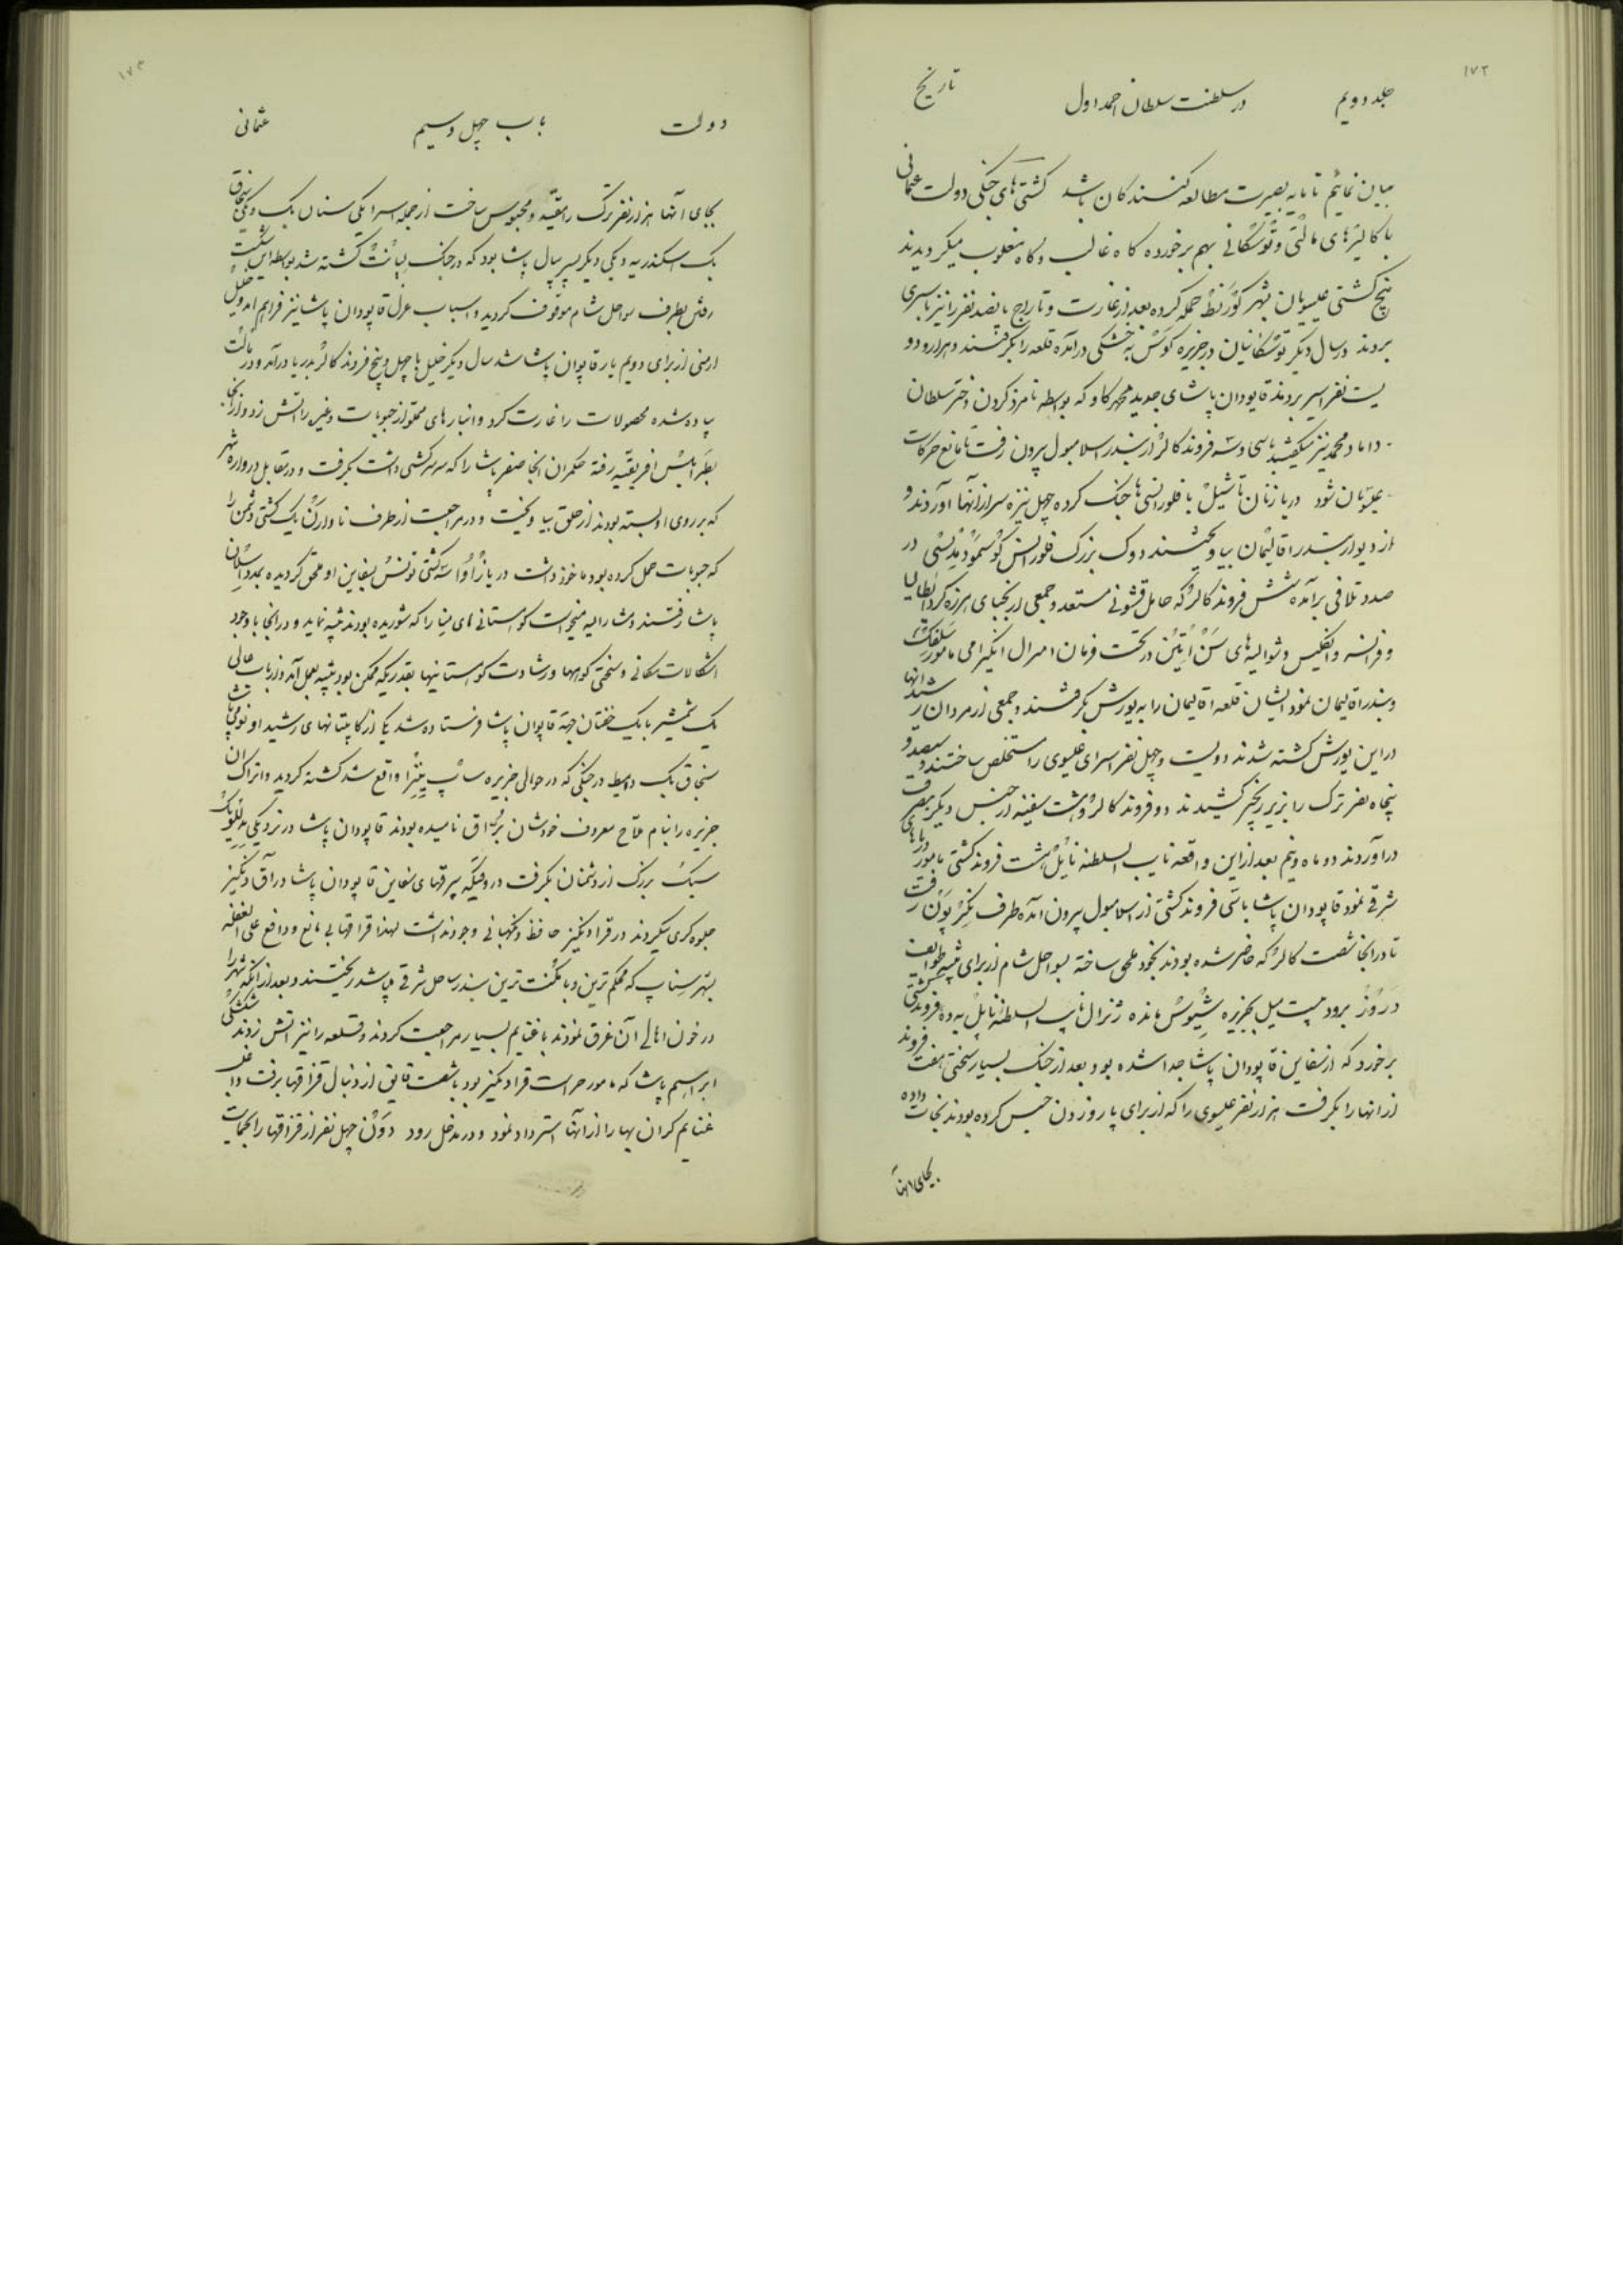 ۱۷۲
جلد دویم در سلطنت سلطان احمد اول تاریخ
بیان نمائیم تا مایه بصیرت مطالعه کنندگان باشد کشتی‌های جنکی دولت عثمانی
با کالیرهای مالتی و توسکانی بهم برخورده کاه غالب و کاه مغلوب میکردیدند
پنج کشتی عیسویان بشهر کورنط حمله کرده بعد از غارت و تاراج پانصد نفر را نیز باسیری
بردند در سال دیکر توسکانیان در جزیره کوس به خشکی درآمده قلعه را بکرفتند و هزار و دو
یست نفر اسیر بردند قاپودان پاشای جدید محمد کاو که بواسطه نامزد کردن دختر سلطان
داماد محمد نیز میکفتند باسی و سه فروند کالر از بندر اسلامبول بیرون رفت تا مانع حرکات
عیسویان شود در بازنان تاشیل با فلورانسی‌ها جنک کرده چهل نیزه سر از آنها آوردند و
از دیوار بندر اقالیمان بیاویختند دوک بزرک فلورانس کوسمو دمدیسی در
صدد تلافی برآمده شش فروند کالر که حامل قشونی مستعد و جمعی از نجبای هرزه کرد ایطالیا
و فرانسه و انکلیس و شوالیه‌های سن اتین در تحت فرمان امیرال انکیرامی مامور سلفکه
و بندر اقالیمان نمود ایشان قلعه اقالیمان را به یورش بکرفتند و جمعی از مردان رشید آنها
در این یورش کشته شدند دویست و چهل نفر اسرای عیسوی را مستخلص ساختند و سیصد و
پنجاه نفر ترک را بزیر زنجیر کشیدند دو فروند کالر و هشت سفینه از جنس دیکر بتصرف
درآوردند دو ماه و نیم بعد از این واقعه نایب السلطنه ناپل هشت فروند کشتی مامور دریاهای
شرقی نمود قاپودان پاشا باسی فروند کشتی از اسلامبول بیرون آمده طرف نکرپون رفت
تا در آنجا شصت کالر که حاضر شده بودند بخود ملحق ساخته بسواحل شام از برای تنبیه طوایف
دروز برود بیست میل بجزیره شیوس مانده ژنرال نایب السلطنه ناپل به ده فروند کشتی
برخورد که از سفاین قاپودان پاشا جدا شده بود بعد از جنک بسیار سختی هفت فروند
از آنها را بکرفت هزار نفر عیسوی را که از برای پارو زدن حبس کرده بودند نجات داده
بجای آنها
۱۷۳
دولت باب چهل و سیم عثمانی
بجای آنها هزار نفر ترک را مقید و محبوس ساخت از جمله اسرا یکی سنان بک و یکی سنجاق
بک اسکندریه و یکی دیکر پسر پیال پاشا بود که در جنک لپانت کشته شد بواسطه این شکست
رفتن بطرف سواحل شام موقوف کردید و اسباب عزل قاپودان پاشا نیز فراهم آمد و خلیل
ارمنی از برای دویم بار قاپودان پاشا شد سال دیکر خلیل با چهل و پنج فروند کالر بدریا درآمد و در مالت
پیاده شده محصولات را غارت کرد و انبارهای مملو از حبوبات و غیره را آتش زد و از آنجا
بطرابلس افریقیه رفته حکمران آنجا صفر پاشا را که سرکشی داشت بکرفت و در مقابل دروازه شهر
که بر روی او بسته بودند از حلق بیاویخت و در مراجعت از طرف ناوارن یک کشتی دشمن را
که حبوبات حمل کرده بود ماخوذ داشت در باز سه کشتی تونس بسفاین او ملحق کردیده بمدد ارسلان
پاشا رفتند و مشارالیه میخواست کوهستانی‌های مینا را که شوریده بودند تنبیه نماید و در آنجا با وجود
اشکالات مکانی و سختی کوهها و رشادت کوهستانیها بقدریکه ممکن بود تنبیه بعمل آمد و از باب عالی
یک شمشیر با یک خفتان بجهة قاپودان پاشا فرستاده شد یکی از کاپیتانهای رشید او
سنجاق بک در جنکی که در حوالی جزیره ساپینزا واقع شد کشته کردید و اتراک آن
جزیره را بنام ملاح معروف خودشان نامیده بودند قاپودان پاشا در نزدیکی
سبک بزرک از دشمنان بکرفت در وقتیکه بیرقهای سفاین قاپودان پاشا در آق دنکیز
جلوه‌کری میکردند در قرا دنکیز حافظ و نکهبانی وجود نداشت لهذا قزاقها بی مانع و دافع علی الغفله
بشهر سیناپ که محکم‌ترین و با مکنت‌ترین بندر ساحل شرقی میباشد ریختند و بعد از آنکه شهر را
در خون اهالی آن غرق نمودند با غنایم بسیار مراجعت کردند و قلعه را نیز آتش زدند
ابراهیم پاشا که مامور حراست قرا دنکیز بود با شصت قایق از دنبال قزاقها برفت و
غنایم کران بها را از آنها استرداد نمود و در مدخل رود دون چهل نفر از قزاقها را